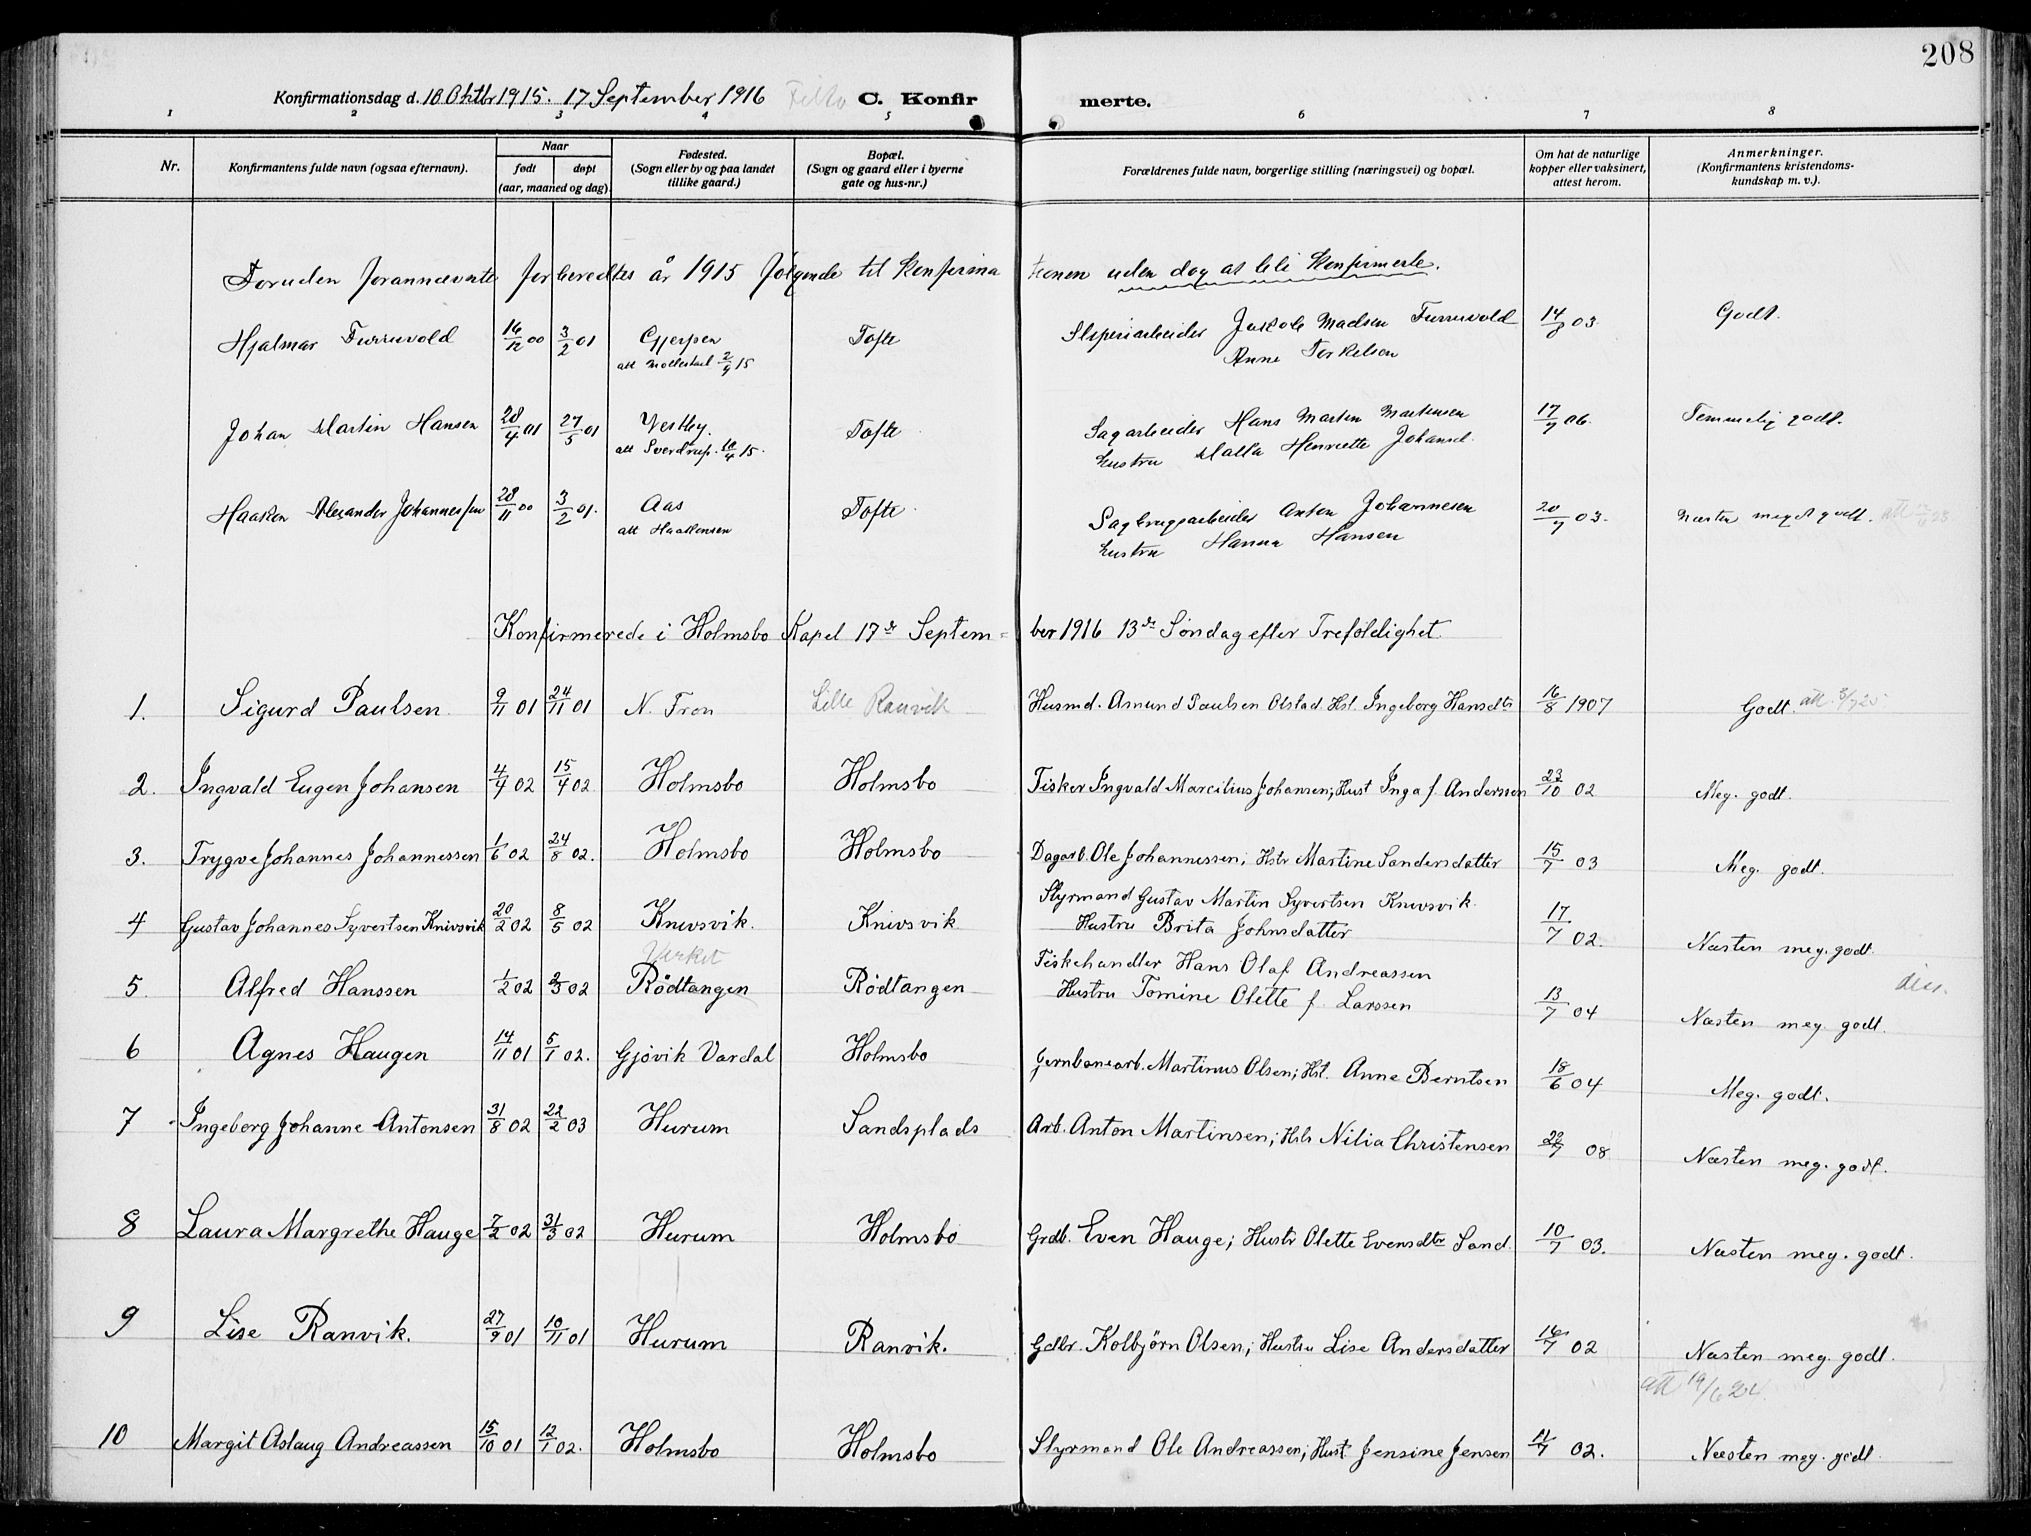 208
Konfirmationsdag d. 10 Oktbr 1915. 17 September 1916 C. Konfirmerte.
1 2 3 4 5 6 7 8
Nr. Konfirmantens fulde navn (ogsaa efternavn). Naar født døpt (aar, maaned og dag). Fødested. (Sogn eller by og paa landet tillike gaard.) Bopæl. (Sogn og gaard eller i byerne gate og hus-nr.) Forældrenes fulde navn, borgerlige stilling (næringsvei) og bopæl. Om hat de naturlige kopper eller vaksinert, attest herom. Anmerkninger. (Konfirmantens kristendomskundskap m. v.).
Foruden forannævnte forberedtes år 1915 følgende til Konfirmationen uden dog at bli Konfirmerte.
Hjalmar Furruvold 16/12 00 3/2 01 Gjerpen Tofte Sliperiarbeider Jakob Madsen Furruvold 14/8 03. Godt.
att Mollestad 2/9 15 Anne Terkelsen
Johan Martin Hansen 28/4 01 27/5 01 Vestby. Tofte Sagarbeider Hans Martin Martinsen 17/7 06. Temmelig godt.
att Sverdrup. 10/4 15. hustru Malla Henriette Johansd.
Haakon Alexander Johannessen 28/11 00 3/2 01. Aas Tofte Sagbrugsarbeider Anton Johannesen 20/7 03. Næsten meget godt.
att Haakensen hustru Hanna Hansen
Konfirmerede i Holmsbo Kapel 17de September 1916 13de Søndag efter Trefoldighet.
1. Sigurd Paulsen 9/11 01 24/11 01 N. Fron Lille Ranvik Husmd. Amund Paulsen Olstad. Hst. Ingeborg Hansdtr 16/8 1907 Godt.
2. Ingvald Eugen Johansen 4/4 02 15/4 02 Holmsbo Holmsbo Fisker Ingvald Marcilius Johansen; Hust Inga f. Anderssen 23/10 02 Meg. godt.
3. Trygve Johannes Johannessen 1/6 02 24/8 02. Holmsbo Holmsbo Dagarb. Ole Johannessen; Hstr Martine Sandersdatter 15/7 03 Meg. godt.
4 Gustav Johannes Syvertsen Knivsvik 20/2 02 8/5 02 Knivsvik. Knivsvik Styrmand Gustav Martin Syvertsen Knivsvik. 17/7 02. Næsten meg. godt
Hustru Brita Johnsdatter
Verket
5 Alfred Hanssen 1/2 02 2/3 02 Rödtangen Rødtangen Fiskehandler Hans Olaf Andreassen 13/7 04 Næsten meg. godt.
Hustru Tomine Olette f. Larssen
6 Agnes Haugen 14/11 01 5/1 02. Gjøvik Vardal Holmsbo Jernbanearb. Martinus Olsen; Hst. Anne Berntsen 18/6 04 Meg. godt.
7 Ingeborg Johanne Antonsen 31/8 02 22/2 03 Hurum Sandsplads Arb. Anton Martinsen; Hstr Nilia Christensen 22/7 08 Næsten meg. godt.
8 Laura Margrethe Hauge 7/2 02 31/3 02 Hurum Holmsbo Grdb. Even Hauge; Hustr Olette Evensdtr Sand 10/7 03. Næsten meg. godt.
9 Lise Ranvik. 27/9 01 10/11 01 Hurum Ranvik. Gdbr. Kolbjörn Olsen; Hustru Lise Andersdatter 16/7 02 Næsten meg. godt.
att 19/6 24.
10 Margit Aslaug Andreassen 15/10 01 12/1 02. Holmsbo Holmsbo Styrmand Ole Andreassen; Hust. Jensine Jensen 11/7 02. Næsten meg. godt